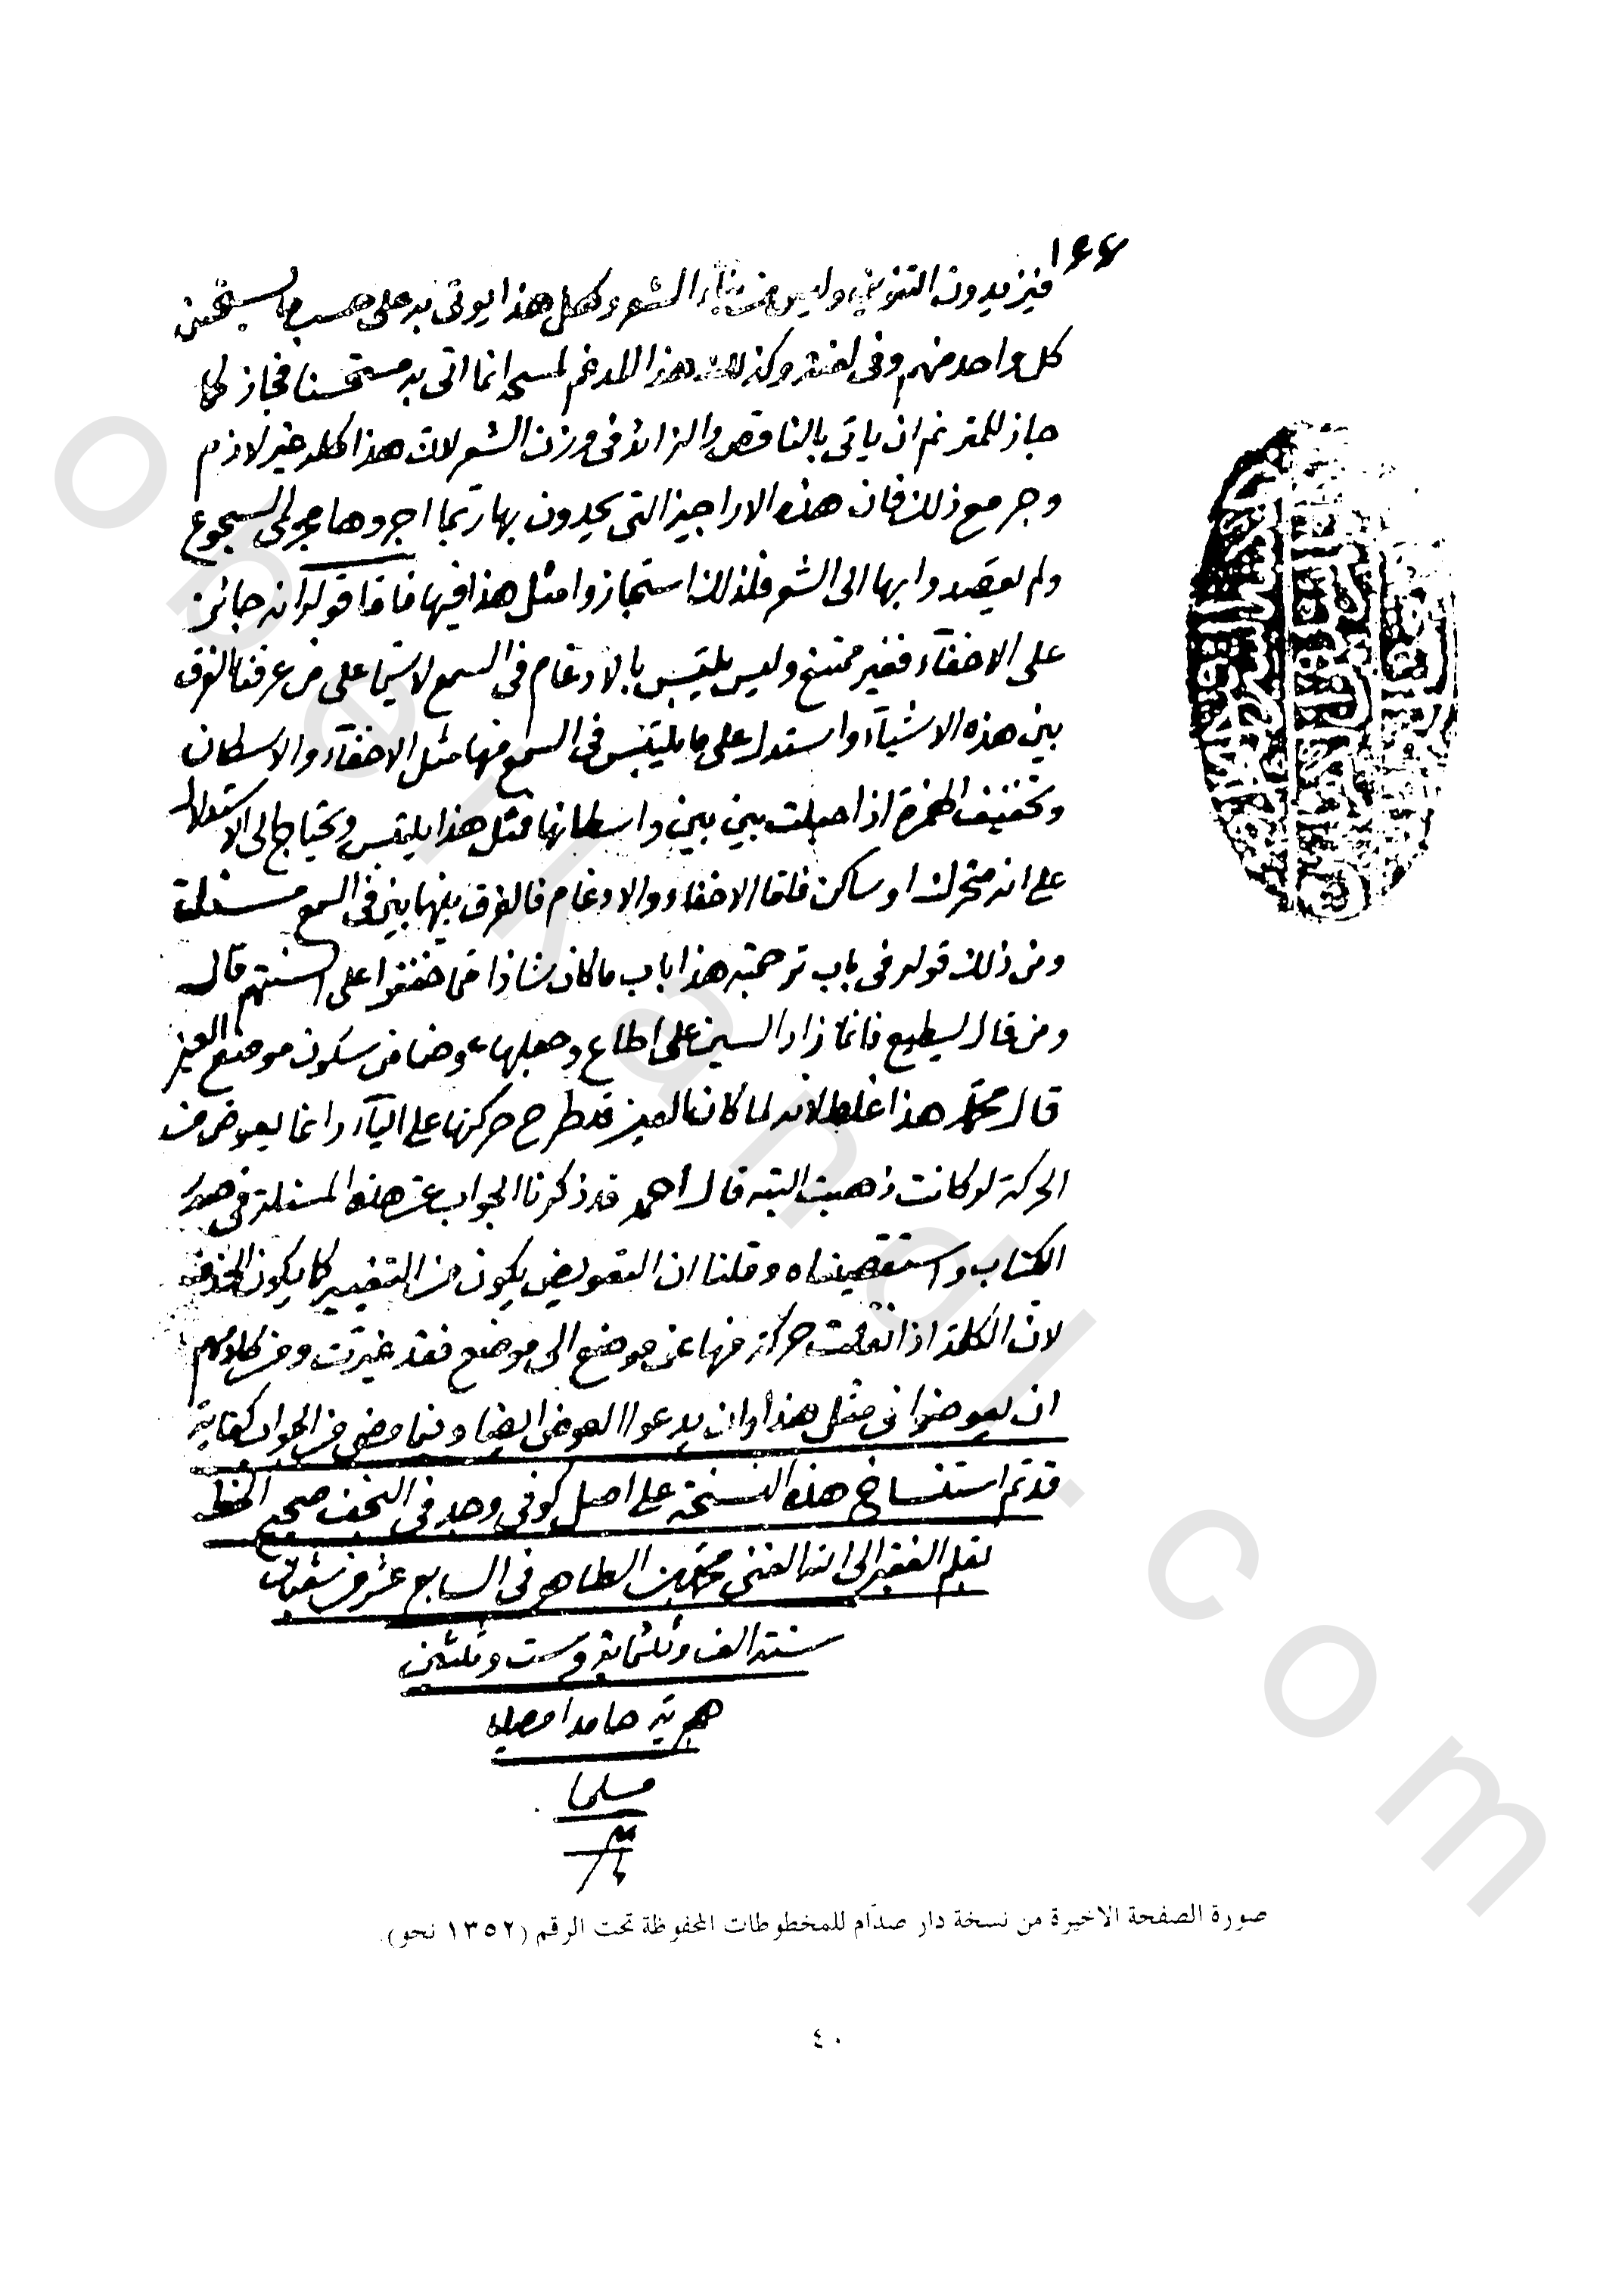 ١٤٤
فيزيدون التنوين وليس من بناء الشعر وكل هذا يوتى به على حسب ما يستحسن
كل واحد منهم وفى لغته وكذلك هذا المدغم لمسحه انما اتى به مستحسنا فجاز كما
جاز للمترنم ان ياتى بالناقص والزائد فى وزن الشعر لان هذا كله غير لازم
وجر مع ذلك فان هذه الاراجيز التى يحدون بها ربما اجروها مجرى السجوع
ولم يقصدوا بها الى الشعر فلذلك استجازوا مثل هذا فيها فاما قوله انه جائز
على الاخفآء فغير ممتنع وليس يلتبس بالادغام فى السمع لا سيّما على من عرف الفرق
بين هذه الاشيآء واستدل على ما يلتبس فى السمع منها مثل الاخفآء والاسكان
وتخفيف الهمزة اذا جعلت بين بين واسكانها فمثل هذا يلتبس ويحتاج الى الاستدلال
على انه متحرك او ساكن فاما الاخفاء والادغام فالفرق بينهما بين فى السمع مسئلة
ومن ذلك قوله فى باب ترجمته هذا باب ما كان شاذا مما خففوا على السنتهم قال
ومن قال يسطيع فانما زاد السين على اطاع وجعلها عوضا من سكون موضع العين
قال محمّد هذا غلط لانه لما كانت العين قد طرح حركتها على اليآء وانما يعوض من
الحركة لو كانت ذهبت البته قال احمد قد ذكرنا الجواب عن هذه المسئلة فى صدر
الكتاب واستقصيناه وقلنا ان التعويض يكون من التغيير كما يكون من الحذف
لان الكلمة اذا نقلت حركة منها عن موضع الى موضع فقد غيرت ومن كلامهم
ان يعوضوا فى مثل هذا وان يدعوا العوض ايضا وفيما مضى من الجواب كفاية
قد تم استنساخ هذه النسخة على اصل كوفى وجد فى النجف صحيح الخط
بقلم الفقير الى الله الغنى محمّد بن الطاهر فى السابع عشر من شعبان
سنة الف وثلثماية وست وثلثين
هجرية حامدا مصليا
مسلما
صورة الصفحة الاخيرة من نسخة دار صدّام للمخطوطات المحفوظة تحت الرقم (١٣٥٢ نحو).
٤٠